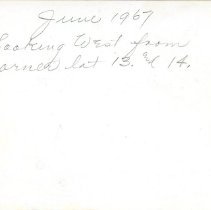 June 1967
Looking West from
corner lat 13. & 14.